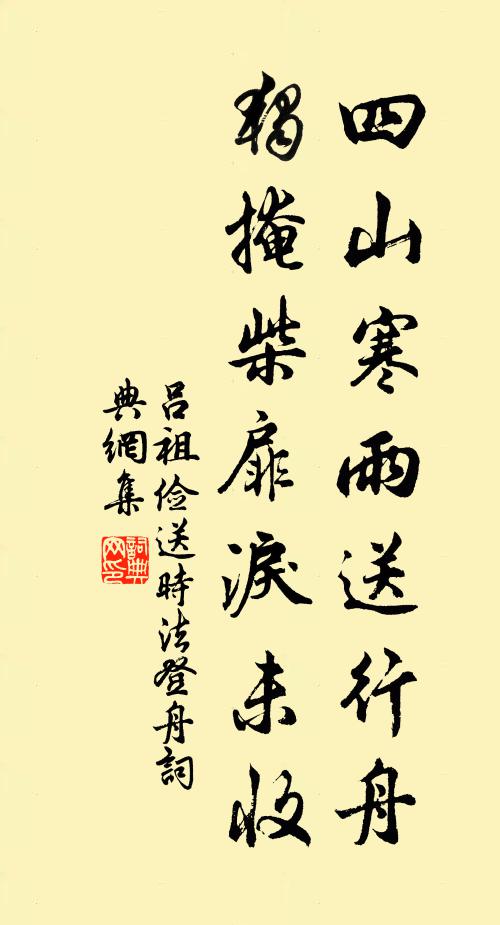 四山寒雨送行舟
独掩柴扉淚未收
吕祖俭送時法登舟詞
典網集
詞典
网印